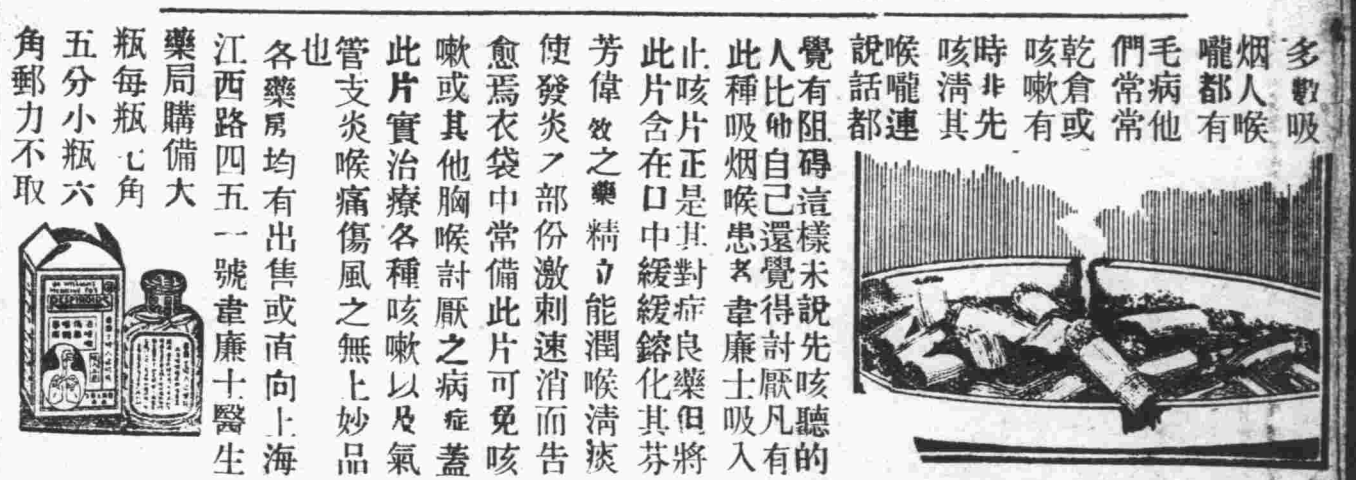 多數吸
烟人喉
嚨都有
毛病他
們常常
乾倉或
咳嗽有
時非先
咳淸其
喉嚨連
說話都
覺有阻碍這樣未說先咳聽的
人比他自己還覺得討厭凡有
此種吸烟喉患者韋廉士吸入
止咳片正是其對症良藥但將
此片含在口中緩緩鎔化其芬
芳偉效之藥精立能潤喉淸痰
使發炎之部份激刺速消而告
愈焉衣袋中常備此片可免咳
嗽或其他胸喉討厭之病症蓋
此片實治療各種咳嗽以及氣
管支炎喉痛傷風之無上妙品
也
各藥房均有出售或直向上海
江西路四五一號韋廉士醫生
藥局購備大
瓶每瓶七角
五分小瓶六
角郵力不取
DR WILLIAMS
MEDICINE CO